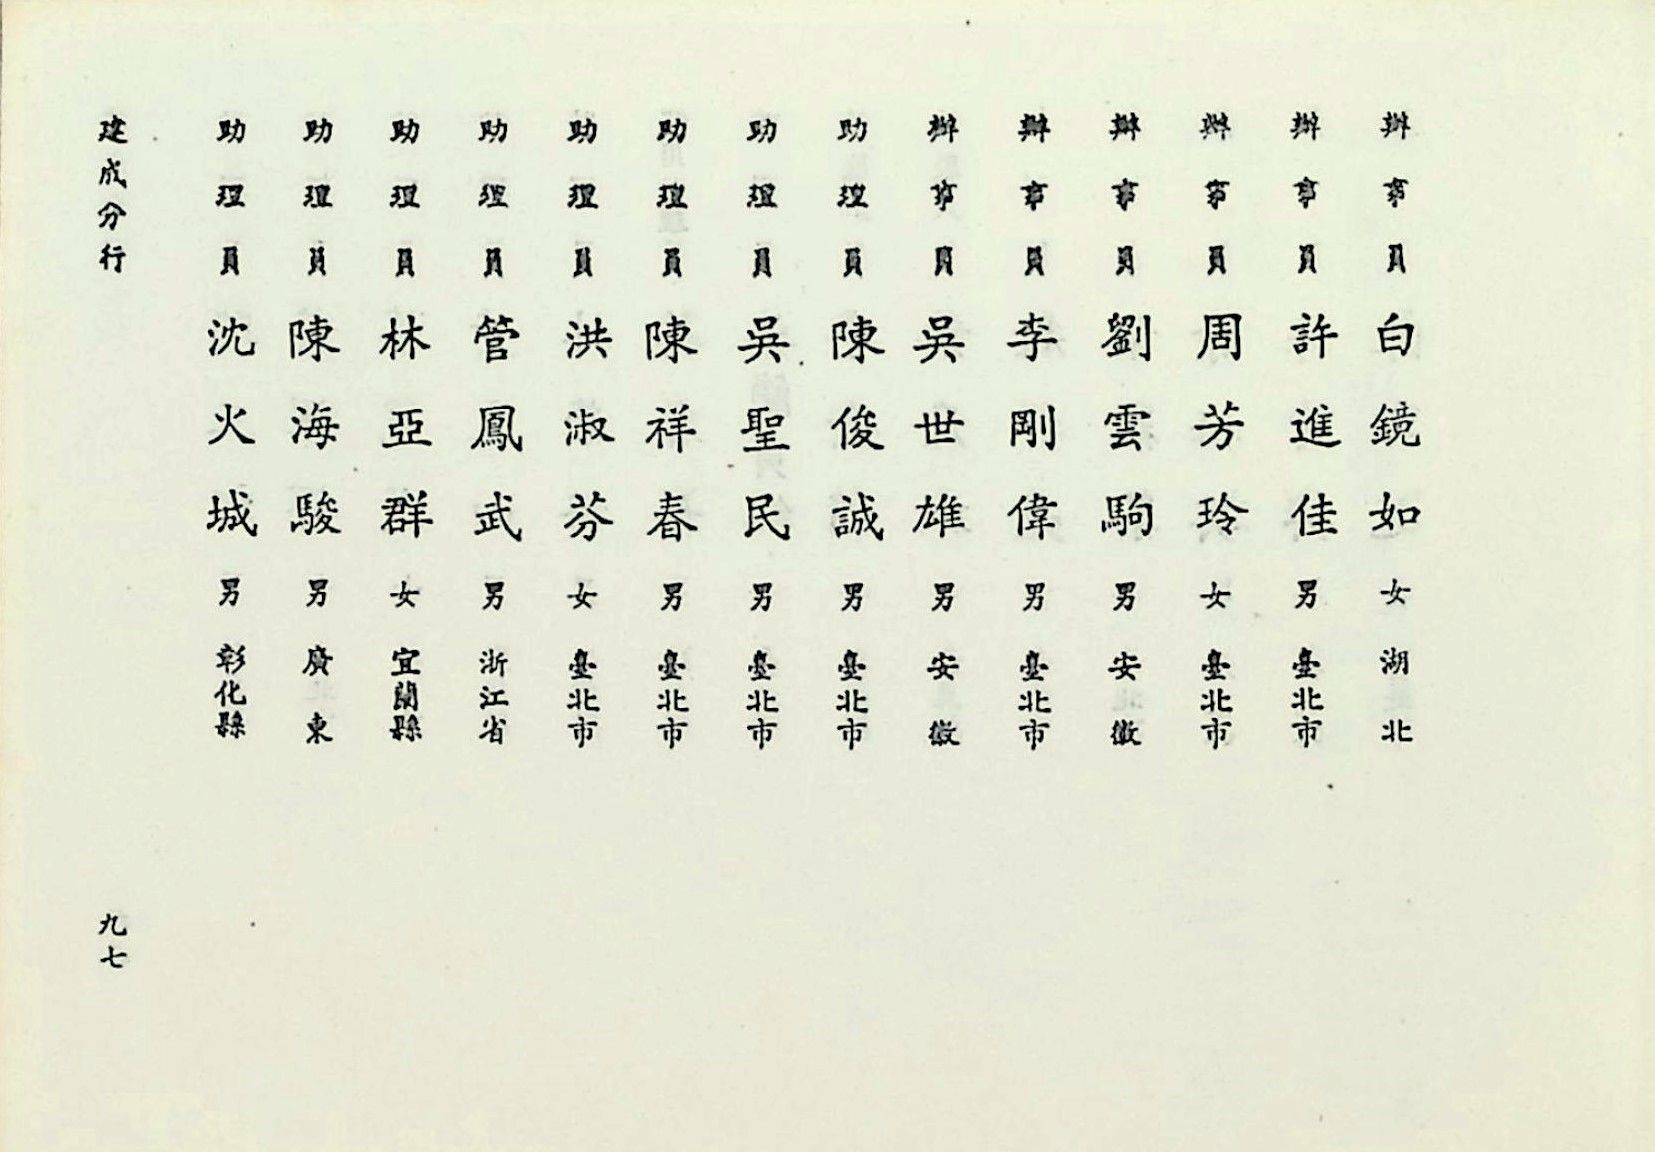 辦事員 白鏡如 女 湖北
辦事員 許進佳 男 臺北市
辦事員 周芳玲 女 臺北市
辦事員 劉雲駒 男 安徽
辦事員 李剛偉 男 臺北市
辦事員 吳世雄 男 安徽
助理員 陳俊誠 男 臺北市
助理員 吳聖民 男 臺北市
助理員 陳祥春 男 臺北市
助理員 洪淑芬 女 臺北市
助理員 管鳳武 男 浙江省
助理員 林亞群 女 宜蘭縣
助理員 陳海駿 男 廣東
助理員 沈火城 男 彰化縣
建成分行 九七